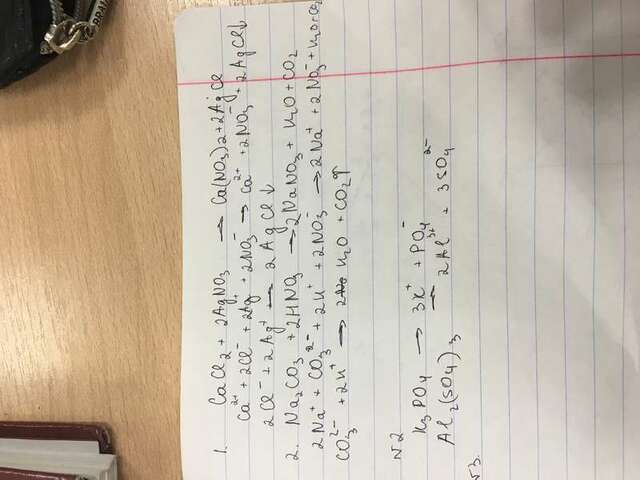 1. CaCl2 + 2AgNO3 → Ca(NO3)2 + 2AgCl
Ca²⁺ + 2Cl⁻ + 2Ag⁺ + 2NO3⁻ → Ca²⁺ + 2NO3⁻ + 2AgCl↓
2Cl⁻ + 2Ag⁺ → 2AgCl↓
2. Na2CO3 + 2HNO3 → 2NaNO3 + H2O + CO2
2Na⁺ + CO3²⁻ + 2H⁺ + 2NO3⁻ → 2Na⁺ + 2NO3⁻ + H2O + CO2
CO3²⁻ + 2H⁺ → H2O + CO2↑
N2
K3PO4 → 3K⁺ + PO4³⁻
Al2(SO4)3 → 2Al³⁺ + 3SO4²⁻
N3.